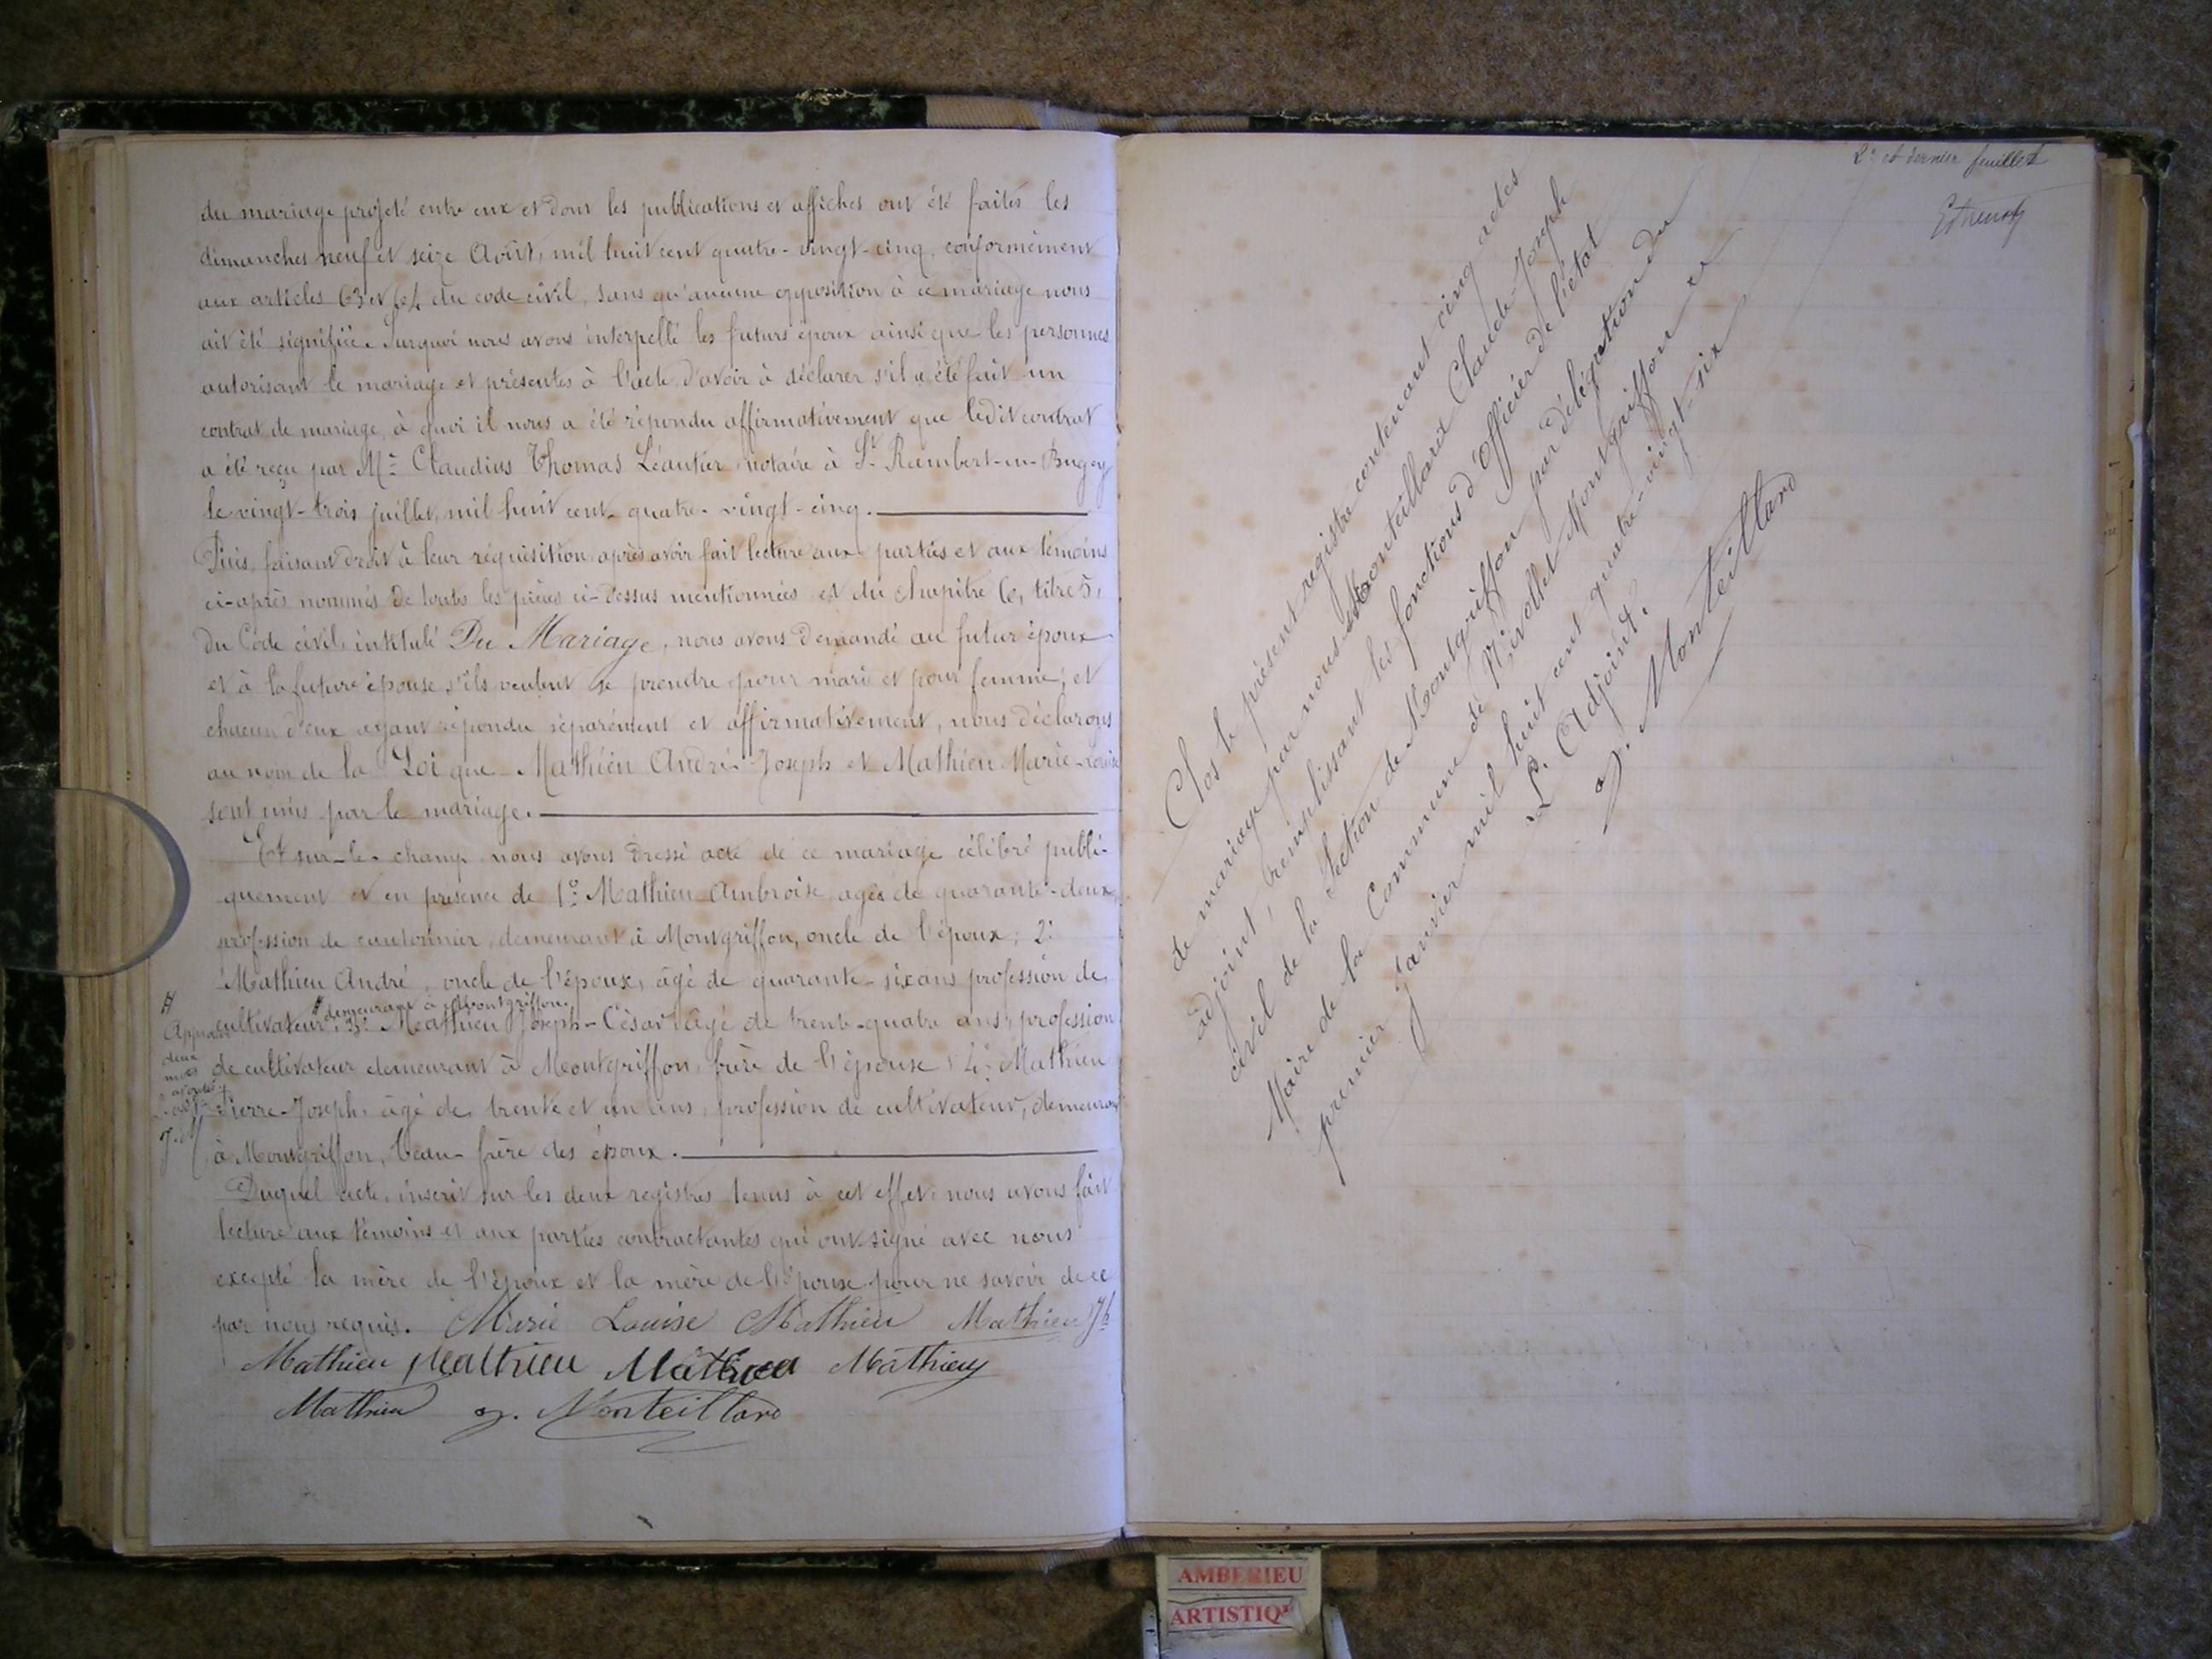 du mariage projeté entre eux et dont les publications et affiches ont été faites les
dimanches neuf et seize Août, mil huit cent quatre-vingt-cinq, conformément
aux articles 63 et 64 du code civil, sans qu'aucune opposition à ce mariage nous
ait été signifiée. Surquoi nous avons interpellé les futurs époux ainsi que les personnes
autorisant le mariage et présentes à l'acte d'avoir à déclarer s'il a été fait un
contrat de mariage, à quoi il nous a été répondu affirmativement que ledit contrat
a été reçu par Me Claudius Thomas Léautier, notaire à St Rambert-en-Bugey
le vingt-trois juillet, mil huit cent quatre-vingt-cinq.
Puis, faisant droit à leur réquisition, après avoir fait lecture aux parties et aux témoins
ci-après nommés de toutes les pièces ci-dessus mentionnées et du chapitre 6, titre 5,
du Code civil, intitulé Du Mariage, nous avons demandé au futur époux
et à la future épouse s'ils veulent se prendre pour mari et pour femme, et
chacun d'eux ayant répondu séparément et affirmativement, nous déclarons
au nom de la Loi que Mathieu André-Joseph et Mathieu Marie-Louise
sont unis par le mariage.
Et sur-le-champ nous avons dressé acte de ce mariage célébré publi-
quement et en présence de 1º Mathieu Ambroise, agés de quarante-deux,
profession de cantonnier, demeurant à Montgriffon, oncle de l'époux; 2º
Mathieu André, oncle de l'époux, âgé de quarante-six ans profession de
# demeurant à Montgriffon.
cultivateur # 3º Mathieu Joseph-César âgé de trente-quatre ans, profession
de cultivateur demeurant à Montgriffon, frère de l'épouse; 4º Mathieu
Pierre-Joseph, âgé de trente et un ans, profession de cultivateur, demeurant
à Montgriffon, beau-frère des époux.
#
deux
mots
J. M
Duquel acte, inscrit sur les deux registres tenus à cet effet, nous avons fait
lecture aux témoins et aux parties contractantes qui ont signé avec nous
excepté la mère de l'époux et la mère de l'épouse pour ne savoir de ce
par nous requis. Marie Louise Mathieu Mathieu Jh
Mathieu Mathieu Mathieu Mathieu
Mathieu J. Monteillard
2e et dernier feuillet
Clos le présent registre contenant cinq actes
de mariage par nous Monteillard Claude-Joseph
adjoint, remplissant les fonctions d'Officier de l'état
civil de la Section de Montgriffon par délégation du
Maire de la Commune de Nivollet Montgriffon et
premier Janvier mil huit cent quatre-vingt-six
L'Adjoint.
J. Monteillard
AMBERIEU
ARTISTIQ